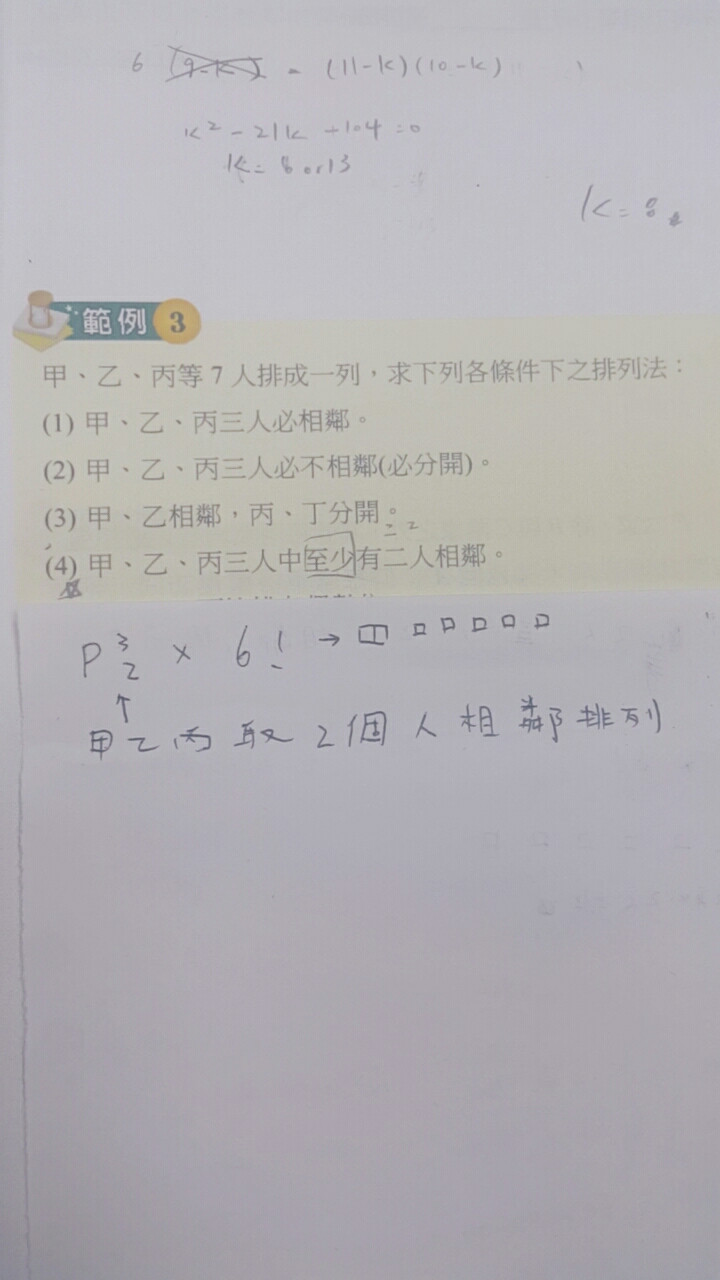 6 (9-k)! = (11-k)(10-k)
k² - 21k + 104 = 0
k = 8 or 13
k = 8
範例 3
甲、乙、丙等 7 人排成一列,求下列各條件下之排列法:
(1) 甲、乙、丙三人必相鄰。
(2) 甲、乙、丙三人必不相鄰(必分開)。
(3) 甲、乙相鄰,丙、丁分開。
(4) 甲、乙、丙三人中至少有二人相鄰。
P³₂ × 6! → □□ □ □ □ □ □
↑
甲乙丙取2個人相鄰排列